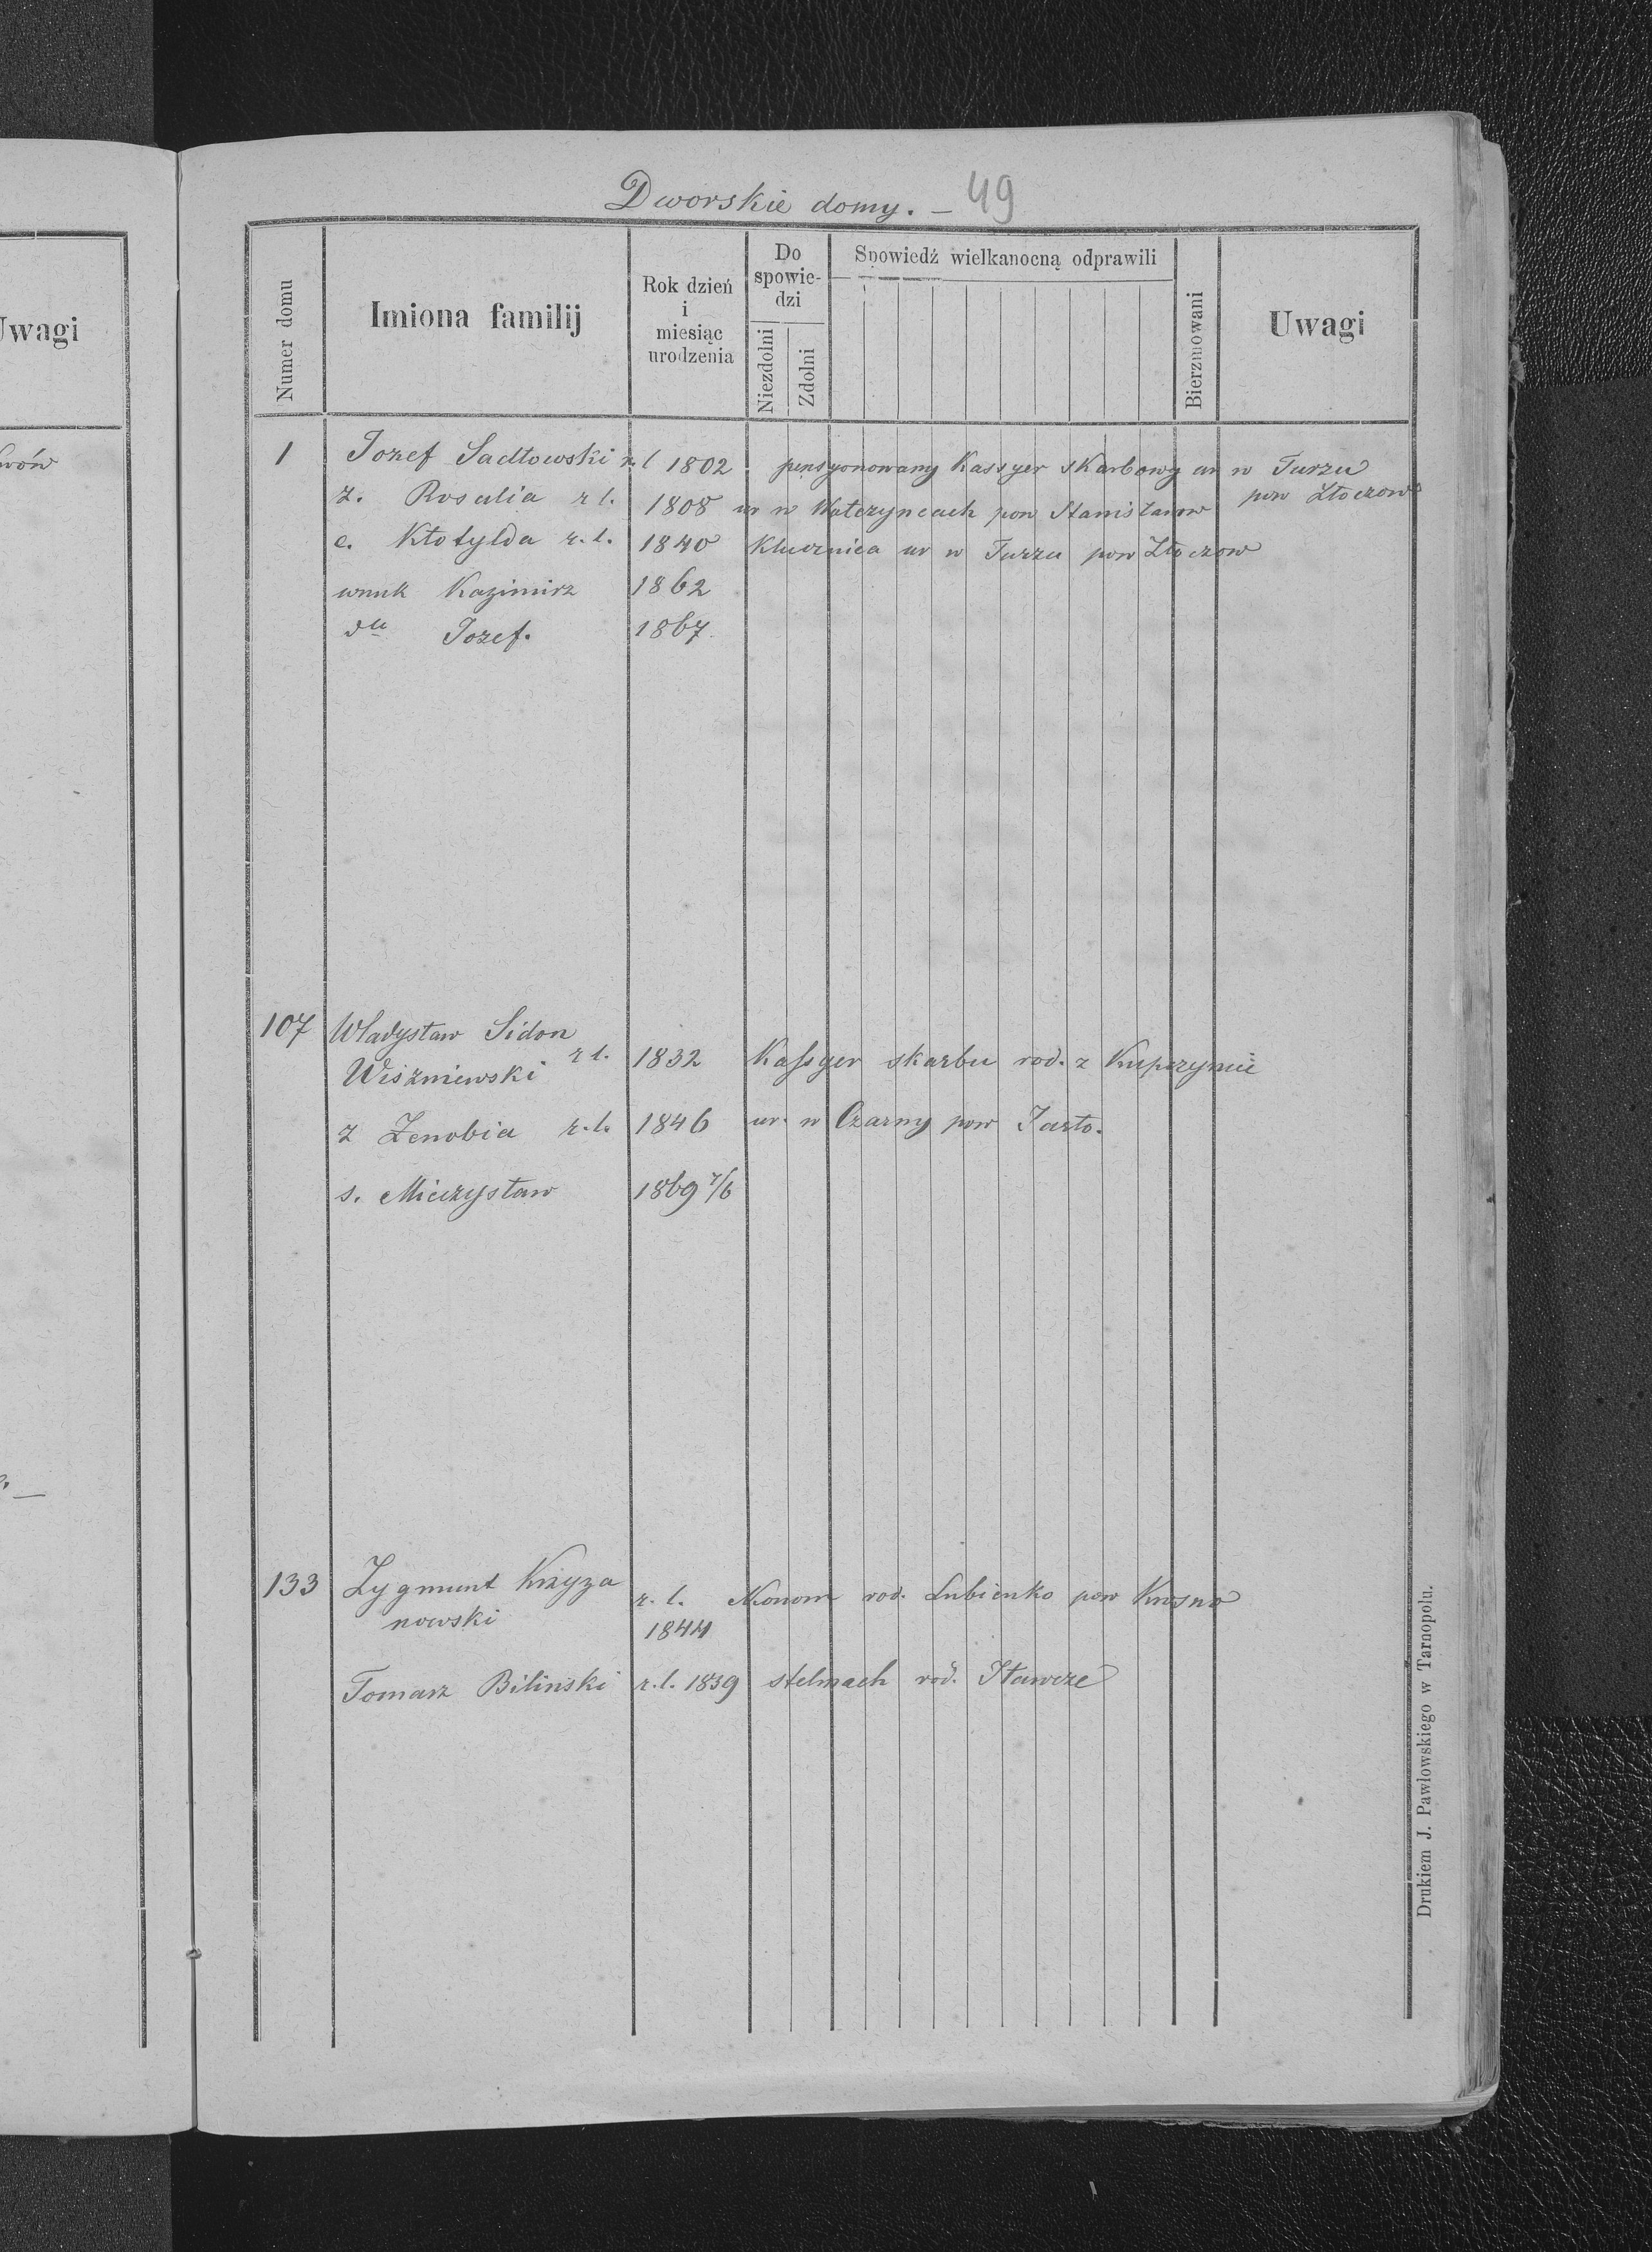 Dworskie domy. — 49
Uwagi
Numer domu
Imiona familij
Rok dzień
i
miesiąc
urodzenia
Do
spowie-
dzi
Niezdolni
Zdolni
Spowiedź wielkanocną odprawili
Bierzmowani
Uwagi
1 Jozef Sadłowski r. l 1802 pensyonowany Kassyer skarbowy ur w Turzu
pow Złoczow
z. Rosalia r l. 1808 ur w pow Stanisławow
c. Kłotylda r. l. 1840 Klucznica ur w Turzu pow Złoczow
wnuk Kazimirz 1862
Jozef. 1867.
107 Władysław Sidon
Wiszniewski r l. 1832 Kassyer skarbu rod. z
z Zenobia r. l. 1846 ur. w Czarny pow Jasło.
s. Mieczysław 1869 7/6
133 Zygmunt Krzyza
nowski r. l. 1844 Ekonom rod. Lubienko pow Krosno
Tomasz Bilinski r. l. 1839 stelmach rod. Iławcze
Drukiem J. Pawłowskiego w Tarnopolu.